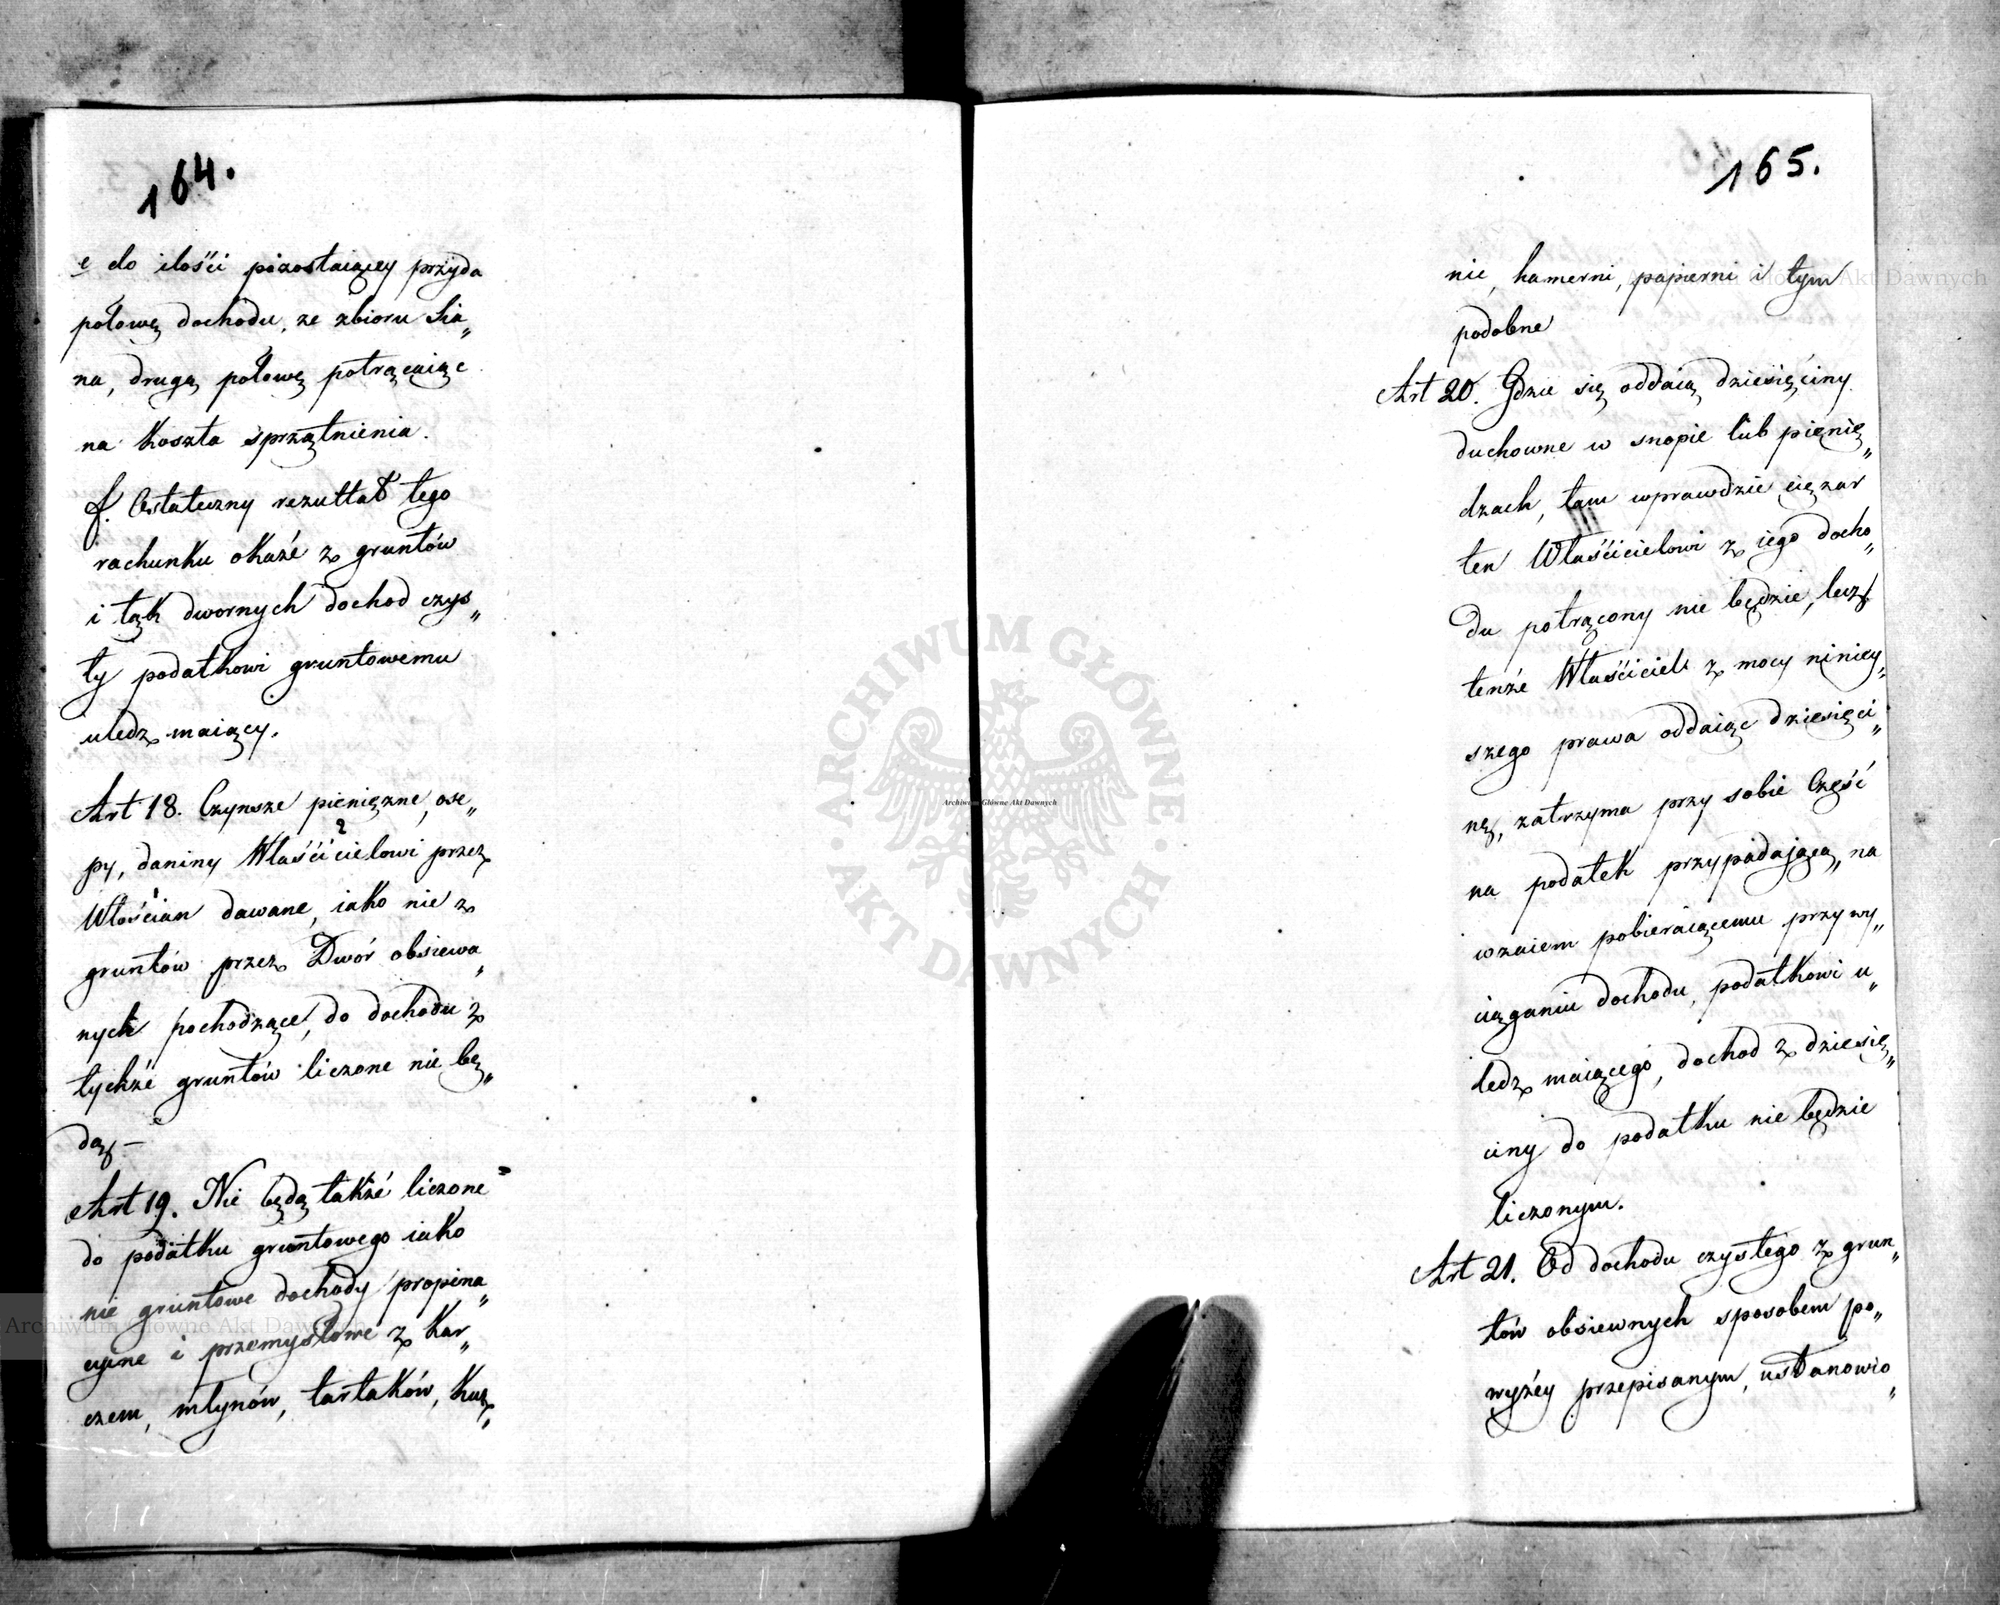 164.
e do ilości pozostaiącey przyda
połowę dochodu, ze zbioru Sia„
na, drugą połowę potrącaiąc
na Koszta sprzątnienia.
f. Ostateczny rezultat tego
rachunku okaże z gruntów
i łąk dwornych dochod czys„
ty podatkowi gruntowemu
uledz maiący.
Art 18. Czynsze pieniężne, ose„
py, daniny Właścicielowi przez
Włościan dawane, iako nie z
gruntów przez Dwór obsiewa„
nych pochodzące, do dochodu z
tychże gruntów liczone nie bę„
dą –
Art 19. Nie będą także liczone
do podatku gruntowego iako
nie gruntowe dochody propina„
cyine i przemysłowe z Kar„
czem, młynów, tartaków, Kuź„
165.
nic, hamerni, papierni i tym
podobne
Art 20. Gdzie się oddaią dziesięciny
duchowne w snopie lub pienię„
dzach, tam wprawdzie ciężar
ten Właścicielowi z iego docho„
du potrącony nie będzie, lecz
tenże Właściciel z mocy niniey„
szego prawa oddaiąc dziesięci„
nę, zatrzyma przy sobie Część
na podatek przypadającą, na
wzaiem pobieraiącemu przy wy„
ciąganiu dochodu, podatkowi u„
ledz maiącego, dochod z dziesię„
ciny do podatku nie będzie
liczonym.
Art 21. Od dochodu czystego z grun„
tów obsiewnych sposobem po„
wyżey przepisanym, ustanowio„
ARCHIWUM GŁÓWNE • AKT DAWNYCH •
Archiwum Główne Akt Dawnych
Archiwum Główne Akt Dawnych
Archiwum Główne Akt Dawnych